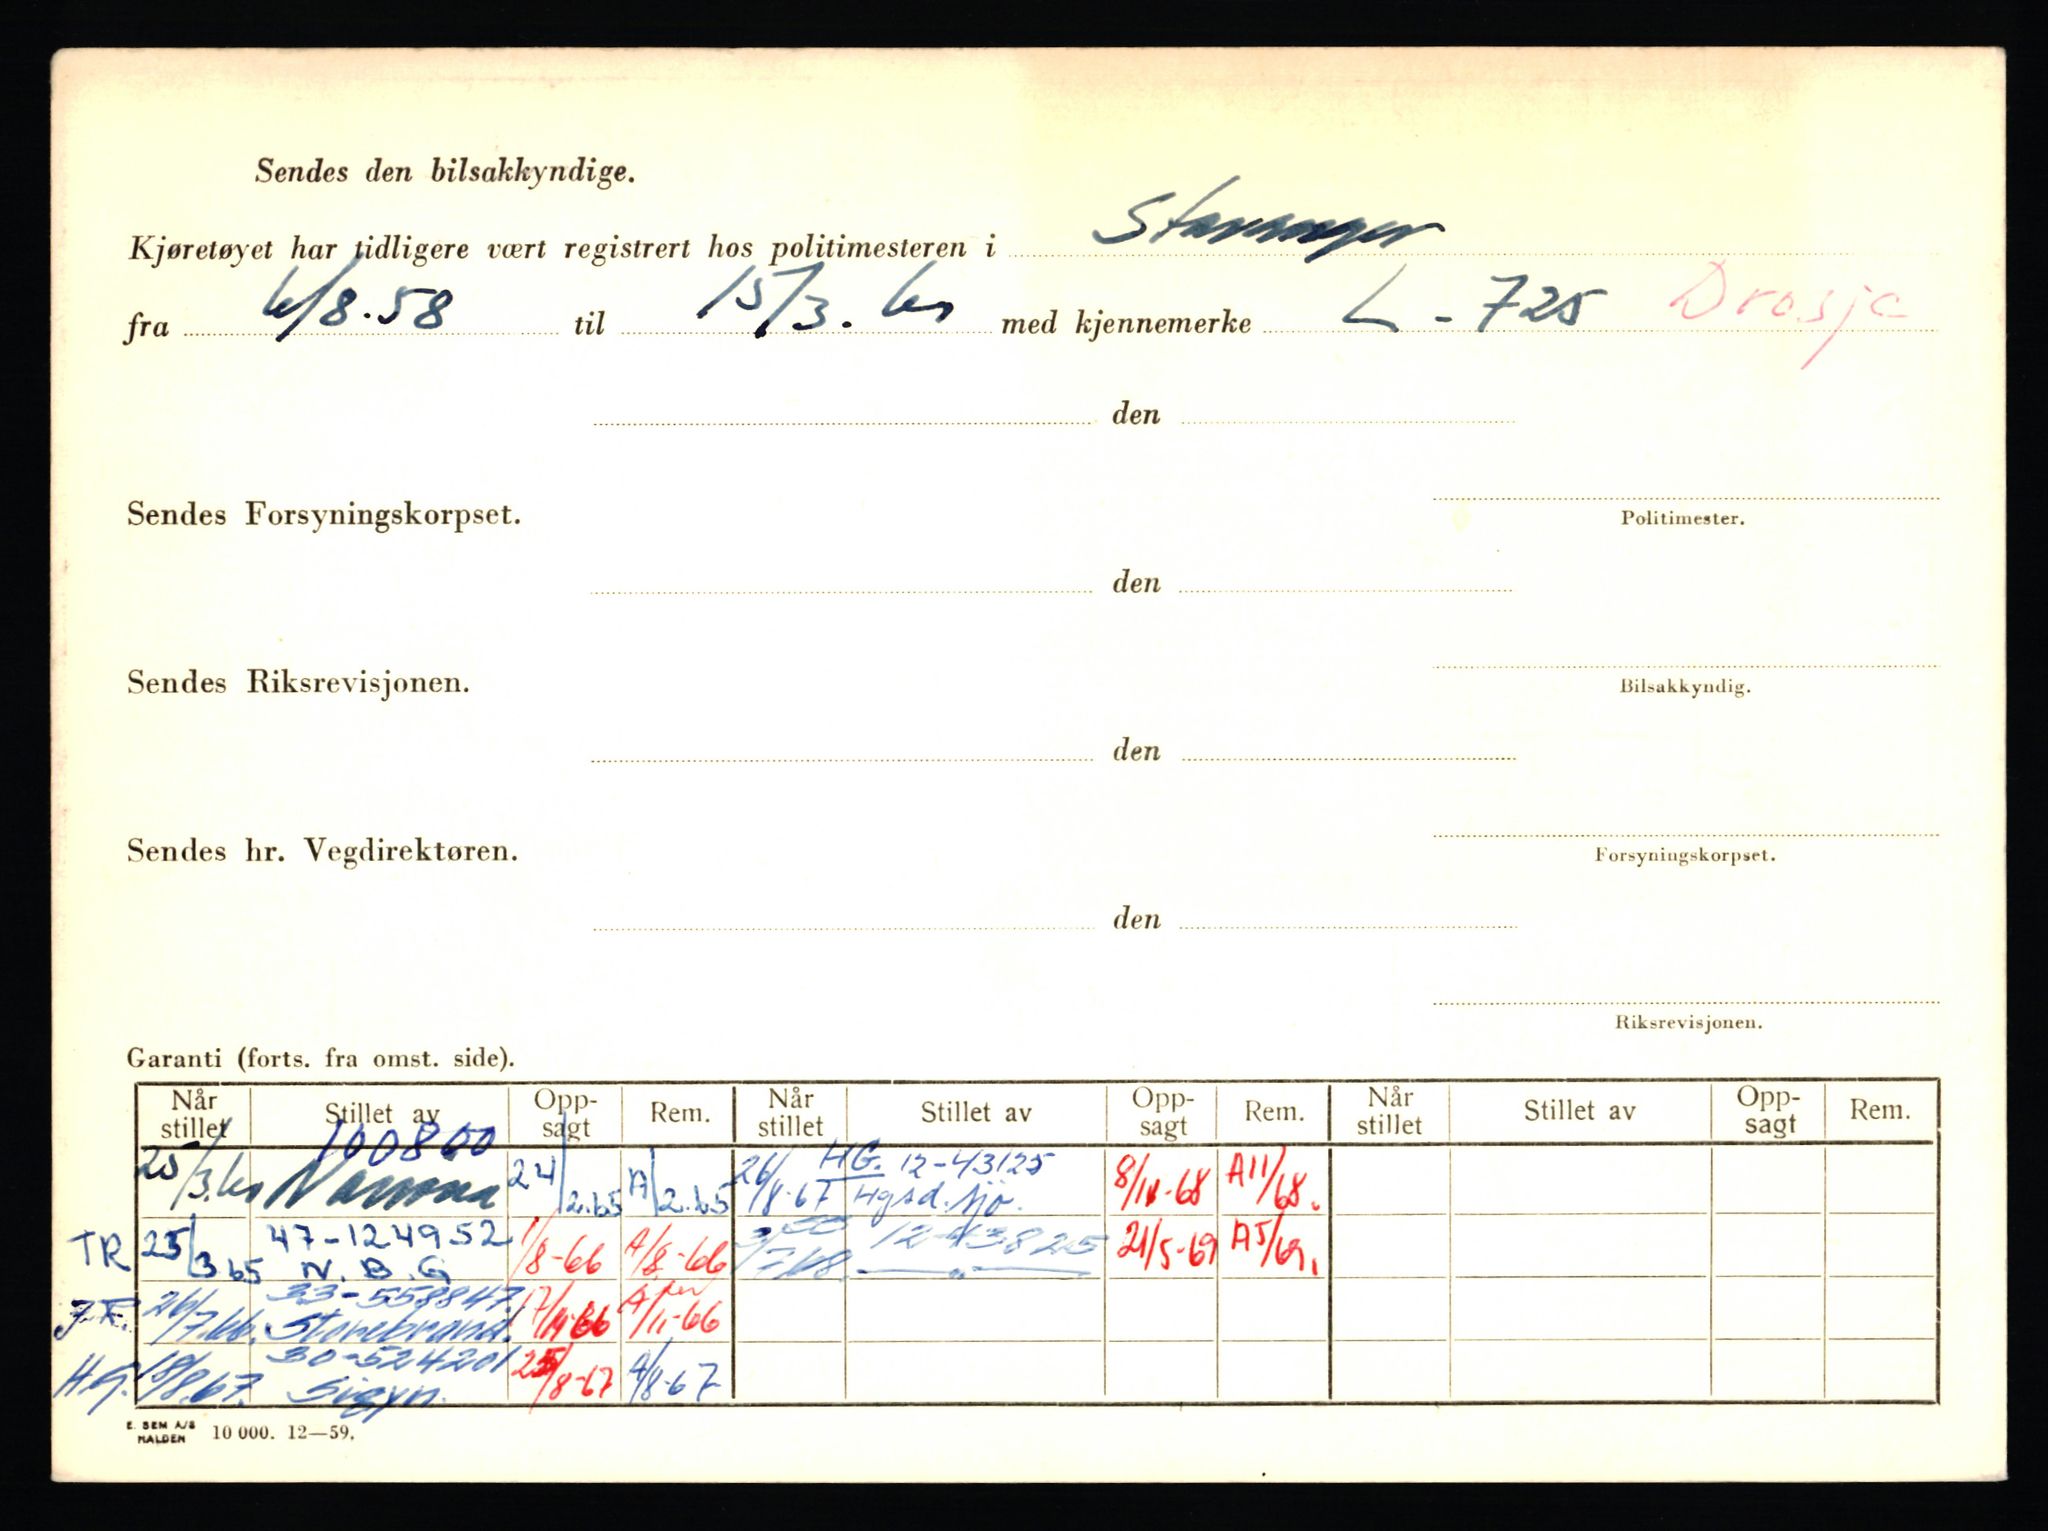 Sendes den bilsakkyndige.
Kjøretøyet har tidligere vært registrert hos politimesteren i Stavanger
fra 6/8.58 til 15/3. 65 med kjennemerke L - 725 Drosje
den
Sendes Forsyningskorpset.
Politimester.
den
Sendes Riksrevisjonen.
Bilsakkyndig.
den
Sendes hr. Vegdirektøren.
Forsyningskorpset.
den
Riksrevisjonen.
Garanti (forts. fra omst. side).
Når stillet Stillet av Opp-sagt Rem. Når stillet Stillet av Opp-sagt Rem. Når stillet Stillet av Opp-sagt Rem.
100800 HG. 12-43125
25/3.65 24/2.65 A/2.65 26/8-67 Hgsd. sjø. 8/11-68 A11/68.
TR 25/3.65 47-124952 1/8-66 A/8-66 12-43825 21/5-69 A5/69.
N.B.G
26/7.66. 33-558847 17/11-66 A/11-66
Storebrand.
H.G. 18/8.67. 30-524201 25/8-67 A/8-67
Sigyn.
E. SEM A/S
HALDEN 10 000. 12—59.